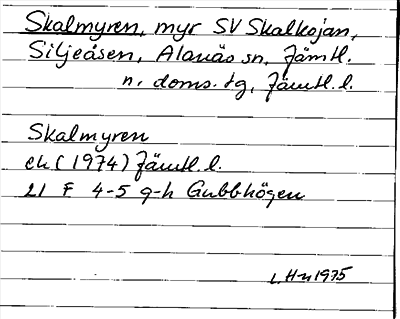 Skalmyren, myr SV Skalkojan,
Siljeåsen, Alanäs sn, Jämtl.
n. doms. tg, Jämtl. l.
Skalmyren
ek (1974) Jämtl. l.
21 F 4-5 g-h Gubbhögen
L. H-n 1975